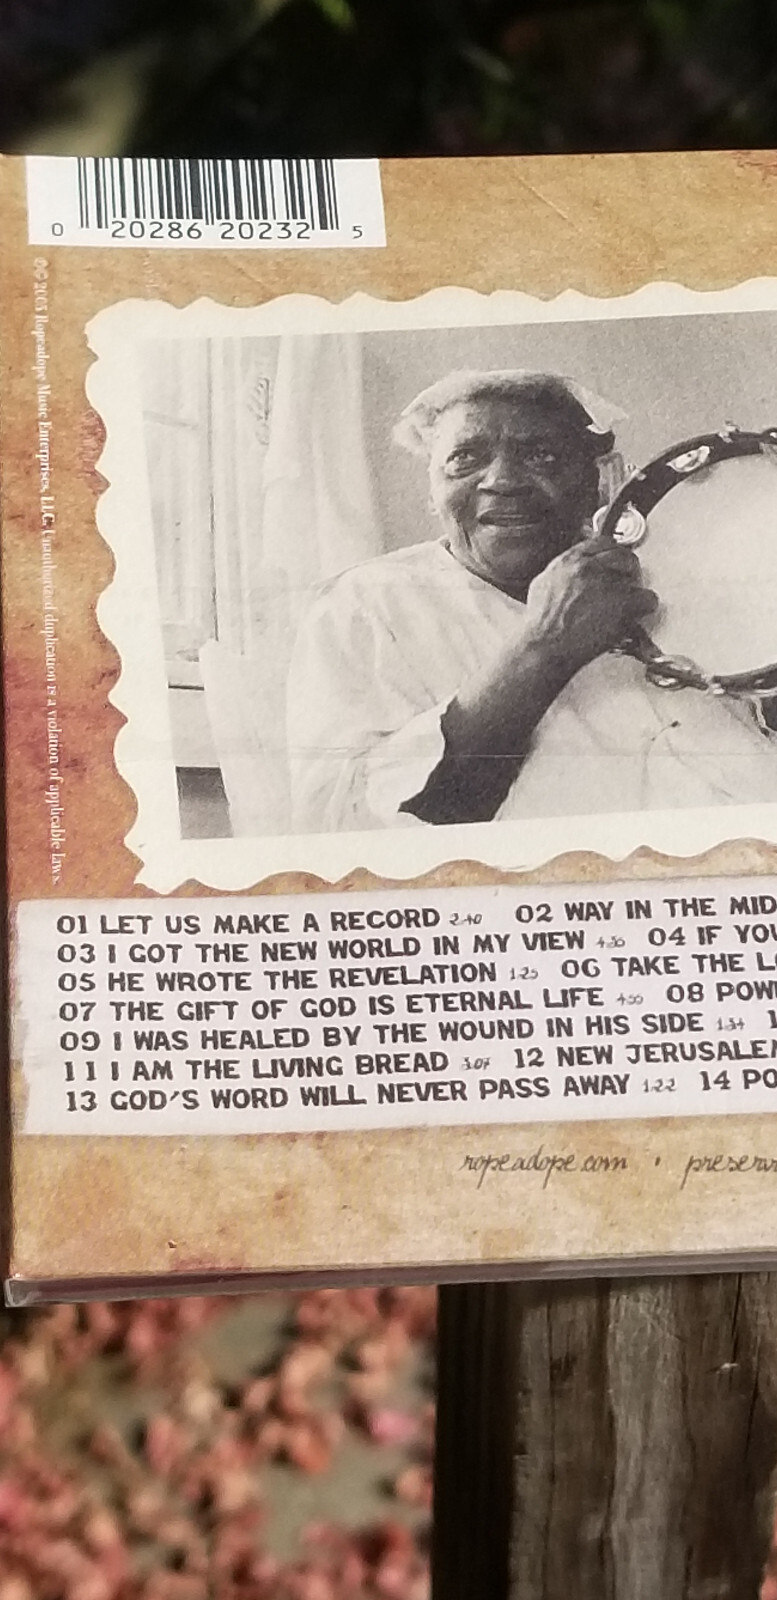 0 20286 20232 5
℗© 2005 Ropeadope Music Enterprises, LLC. Unauthorized duplication is a violation of applicable laws.
01 LET US MAKE A RECORD 2:40 02 WAY IN THE MID
03 I GOT THE NEW WORLD IN MY VIEW 04 IF YOU
05 HE WROTE THE REVELATION 1:25 06 TAKE THE LO
07 THE GIFT OF GOD IS ETERNAL LIFE 08 POW
09 I WAS HEALED BY THE WOUND IN HIS SIDE 1:34 1
11 I AM THE LIVING BREAD 3:07 12 NEW JERUSALEM
13 GOD'S WORD WILL NEVER PASS AWAY 1:22 14 PO
ropeadope.com · preserv